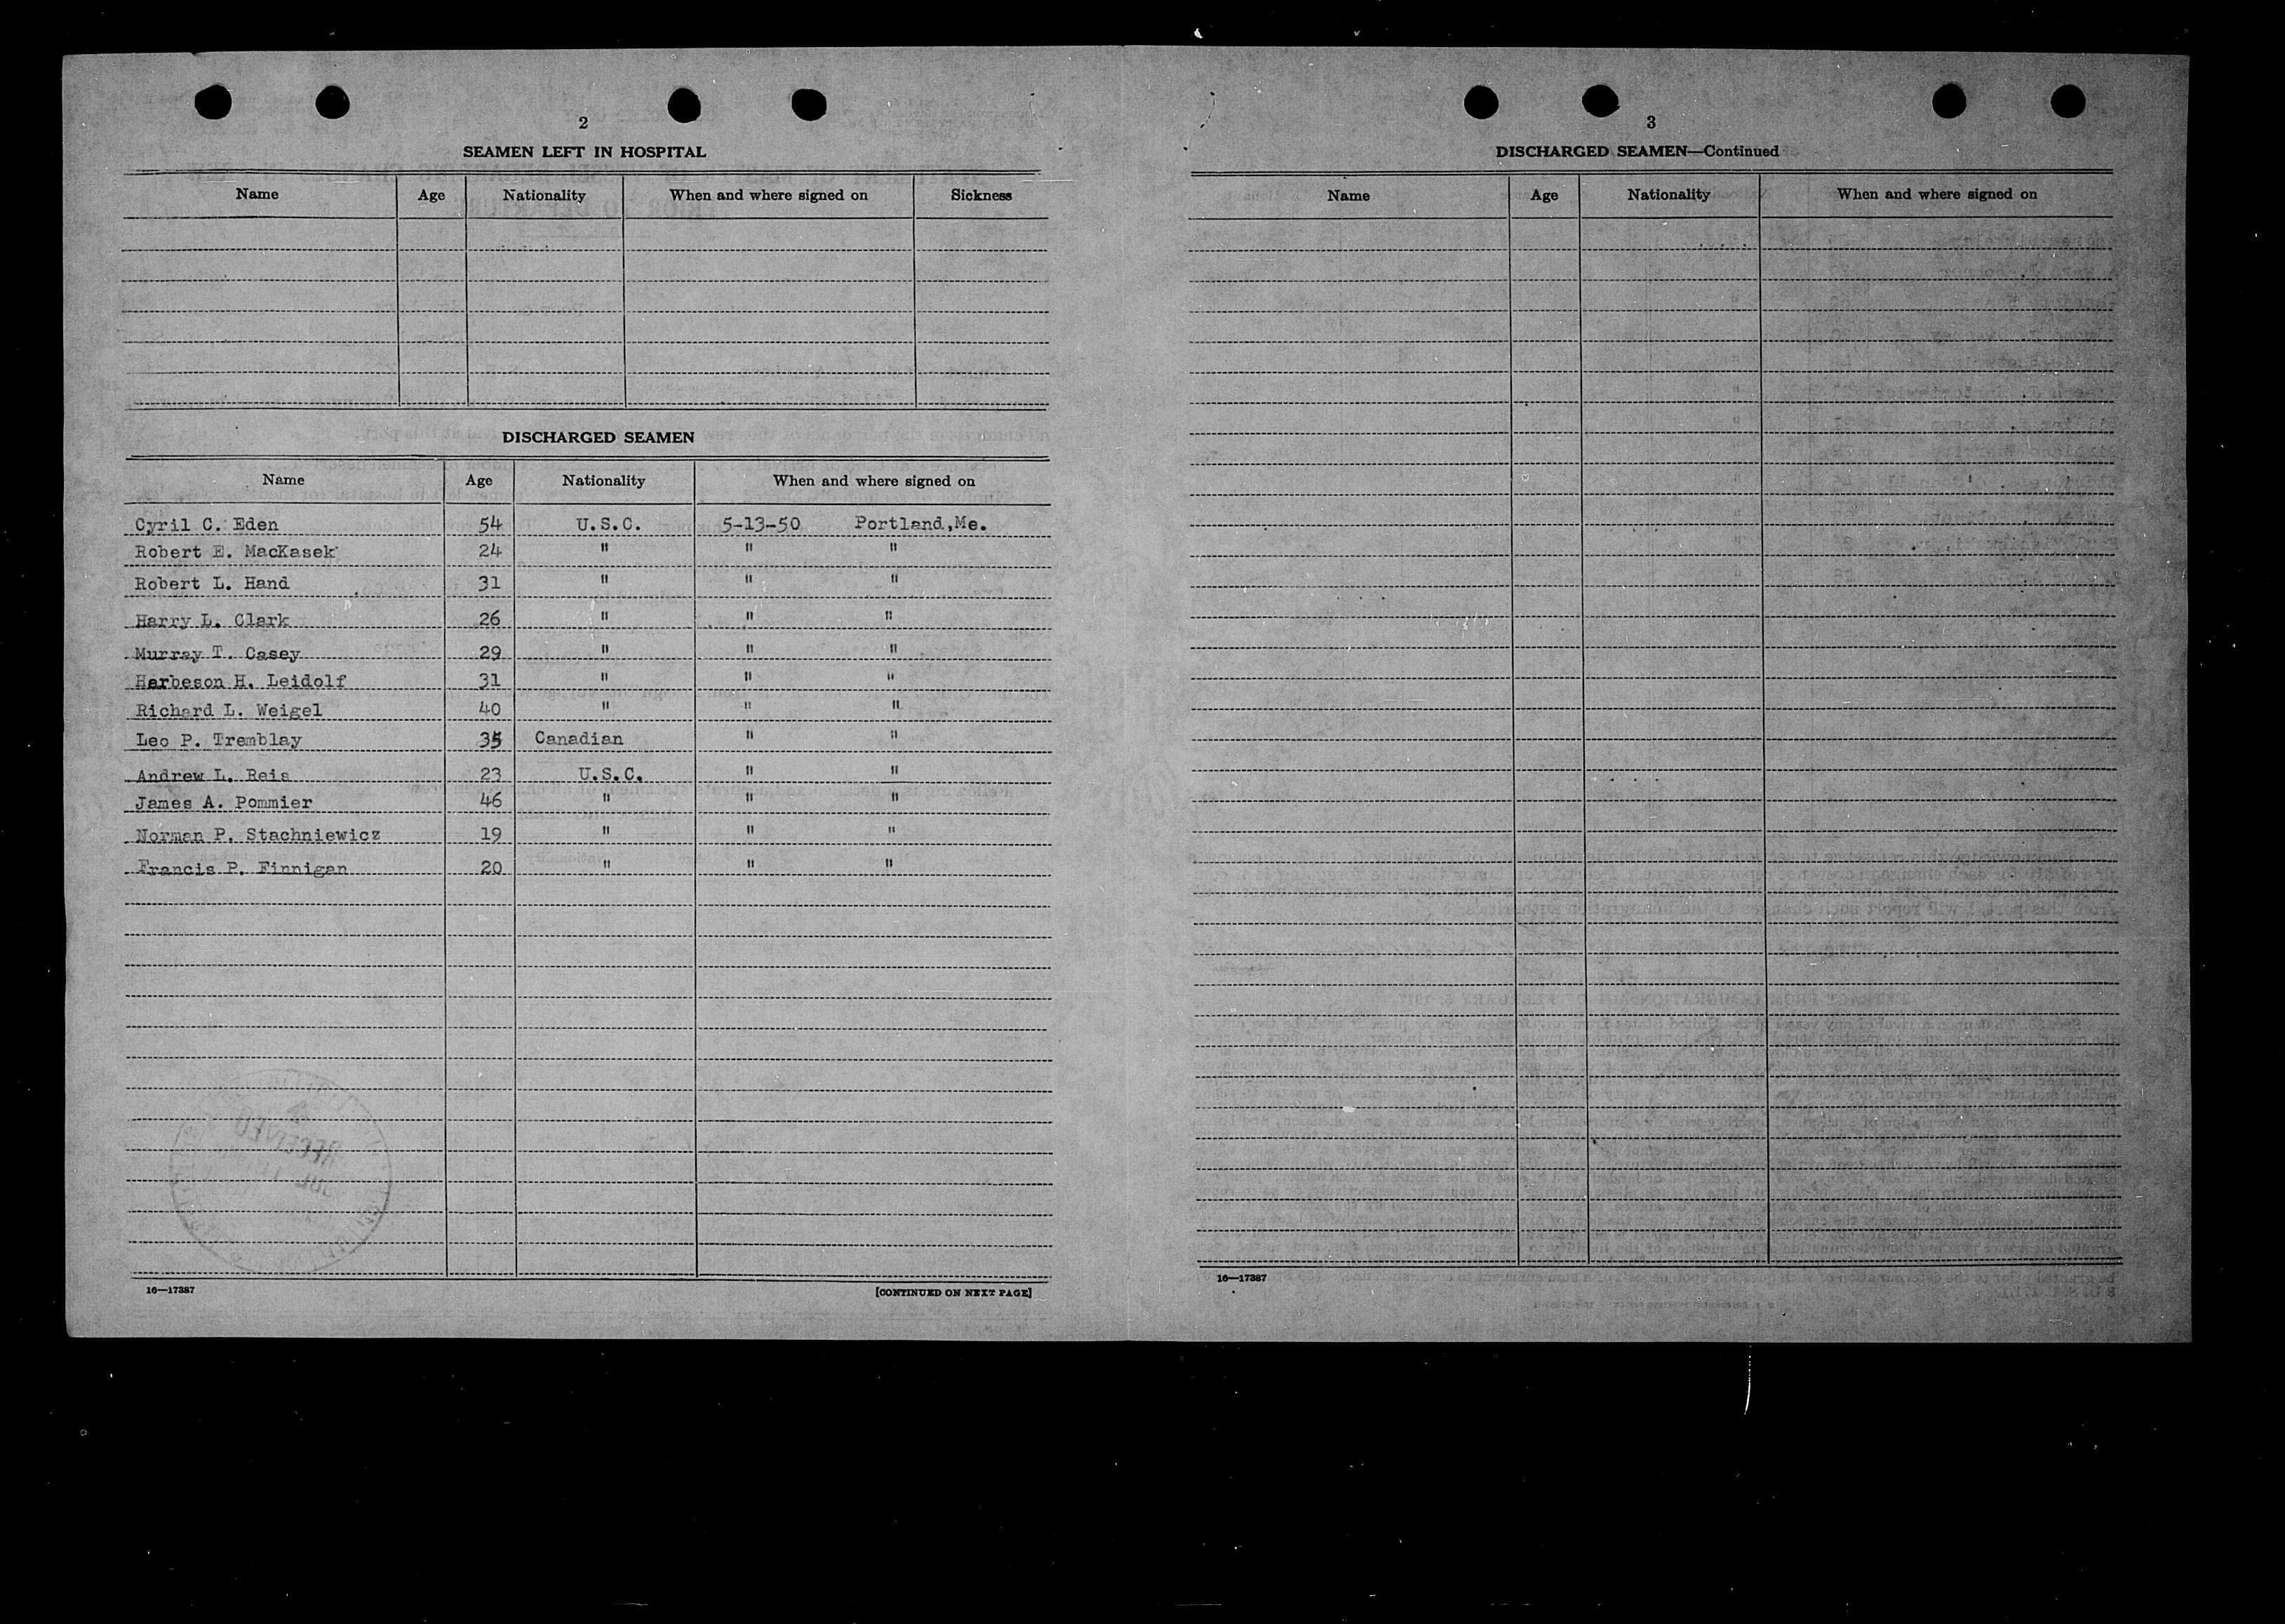 2
SEAMEN LEFT IN HOSPITAL
Name Age Nationality When and where signed on Sickness
DISCHARGED SEAMEN
Name Age Nationality When and where signed on
Cyril C. Eden 54 U.S.C. 5-13-50 Portland,Me.
Robert E. MacKasek 24 " " "
Robert L. Hand 31 " " "
Harry L. Clark 26 " " "
Murray T. Casey 29 " " "
Harbeson H. Leidolf 31 " " "
Richard L. Weigel 40 " " "
Leo P. Tremblay 35 Canadian " "
Andrew L. Reis 23 U.S.C. " "
James A. Pommier 46 " " "
Norman P. Stachniewicz 19 " " "
Francis P. Finnigan 20 " " "
16—17387 [CONTINUED ON NEXT PAGE]
3
DISCHARGED SEAMEN—Continued
Name Age Nationality When and where signed on
16—17387